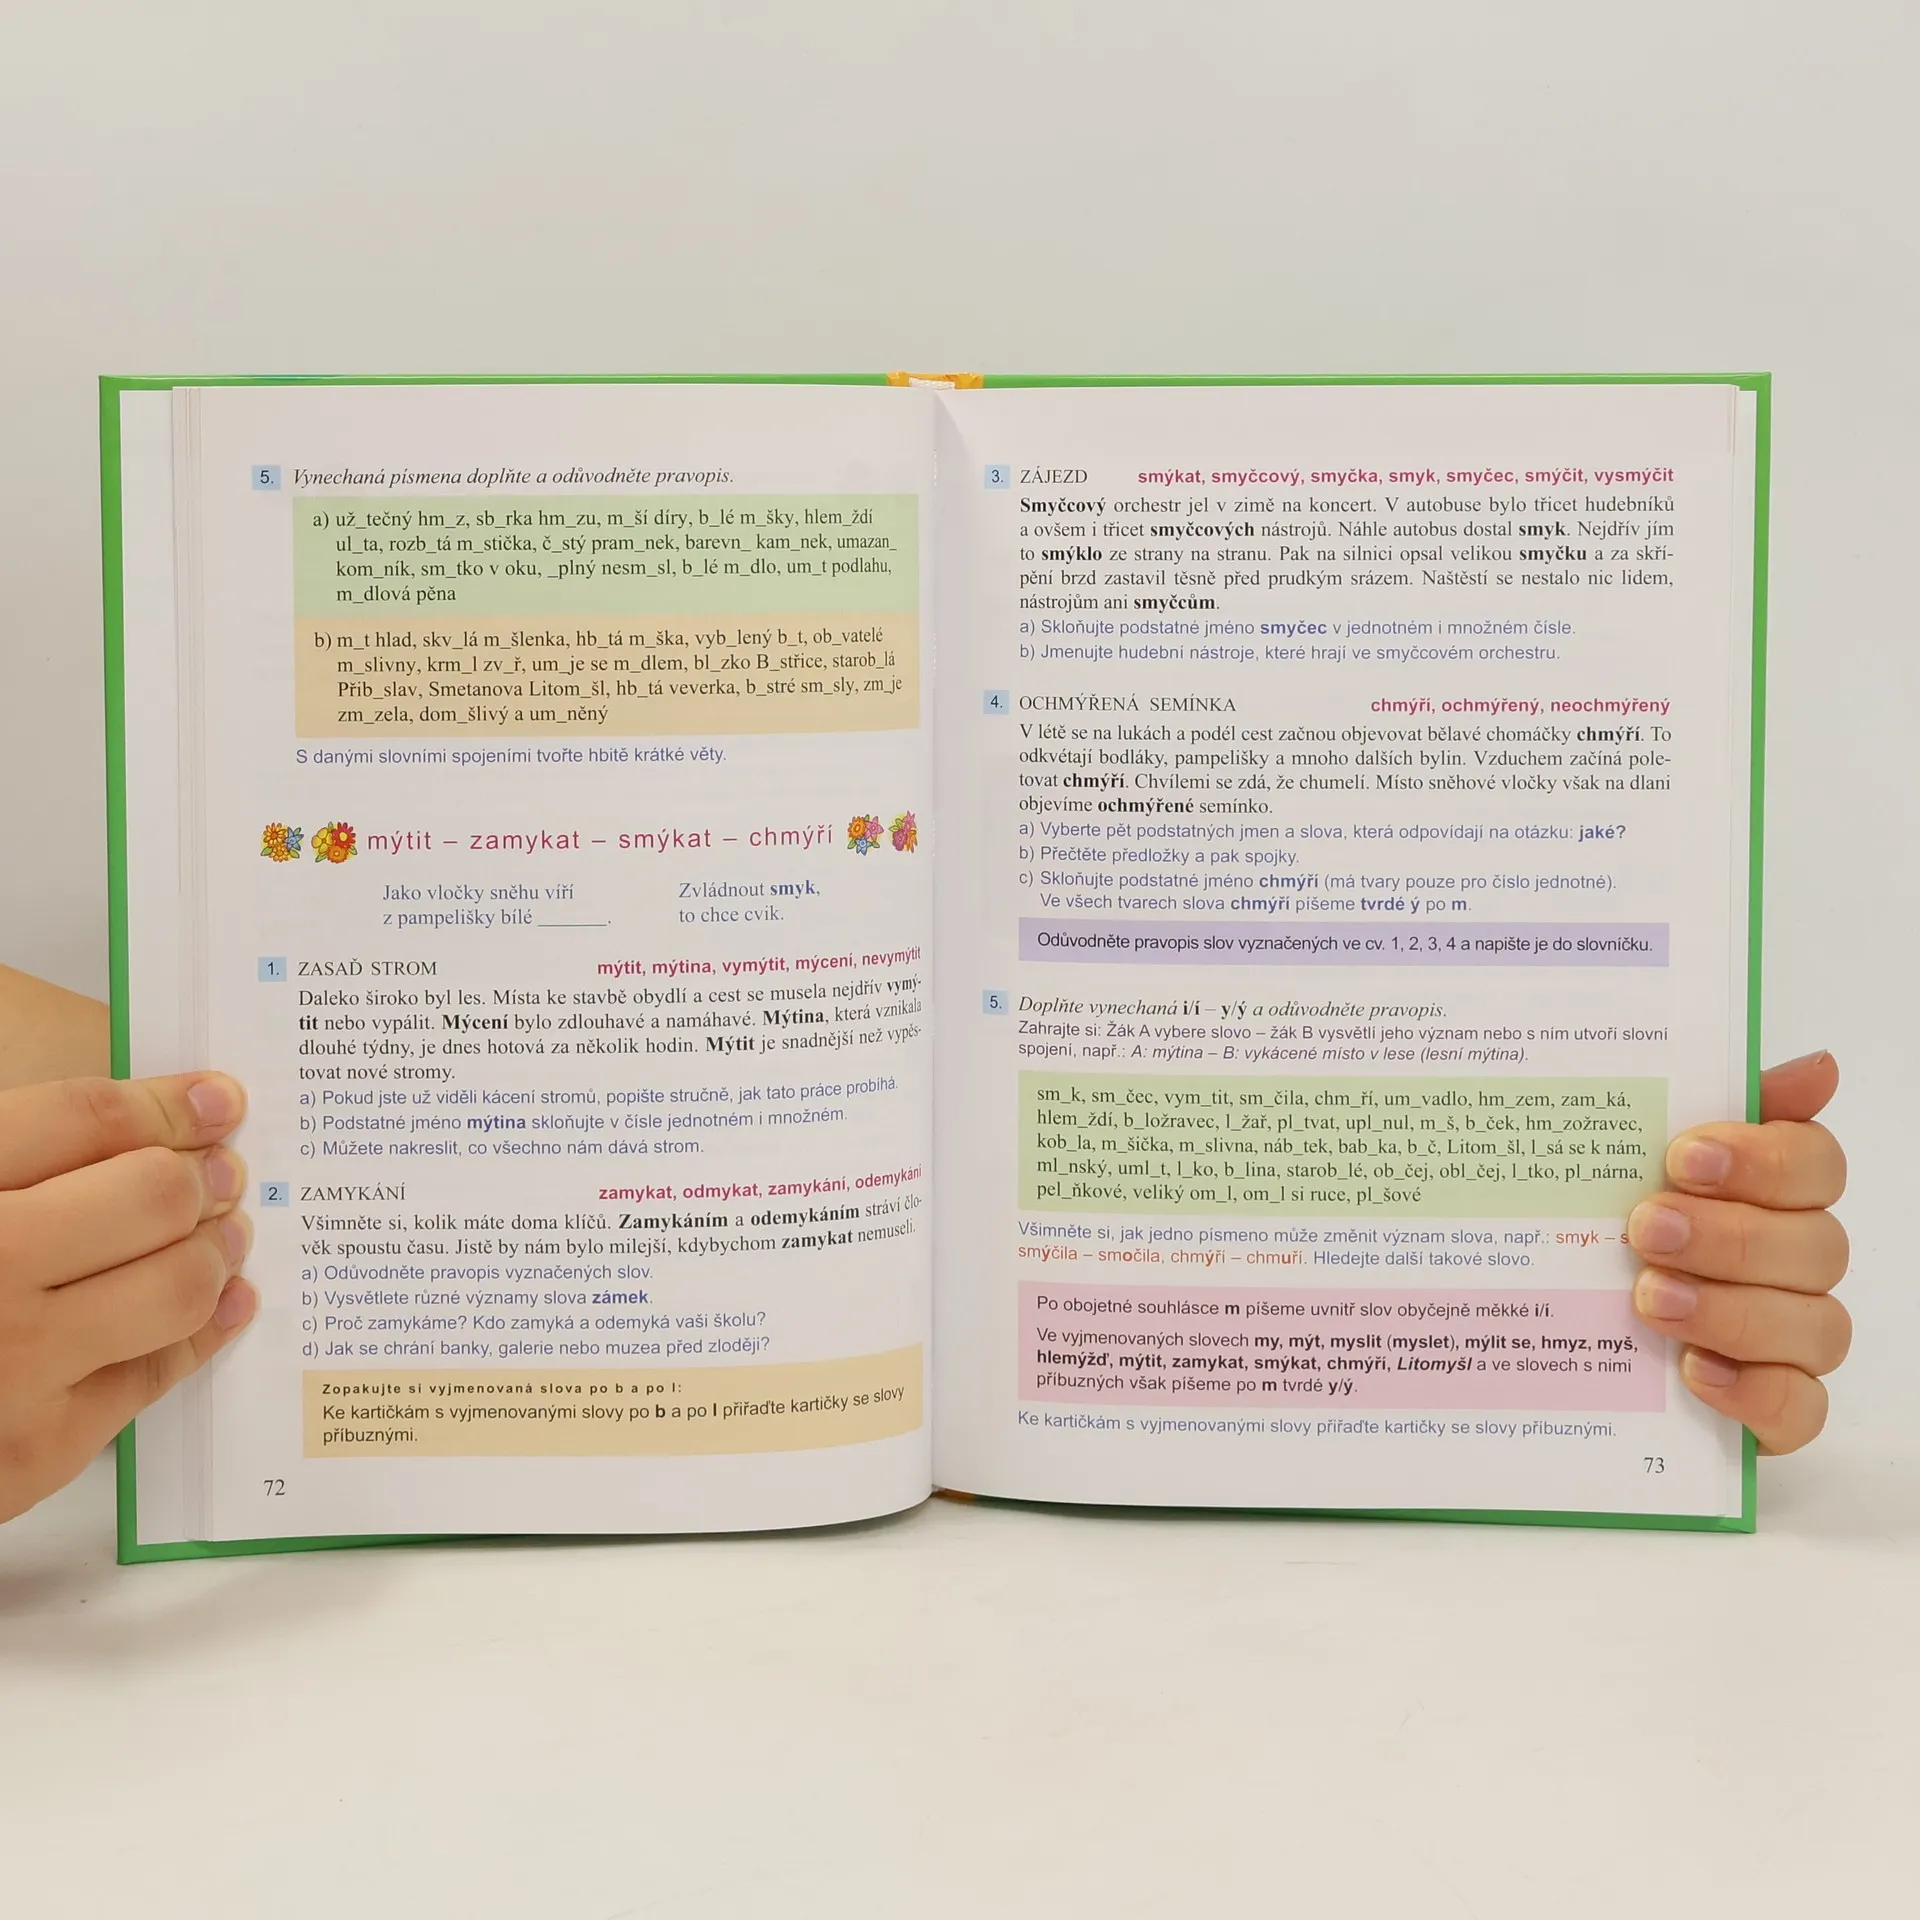 5. Vynechaná písmena doplňte a odůvodněte pravopis.
a) už_tečný hm_z, sb_rka hm_zu, m_ší díry, b_lé m_šky, hlem_ždí
ul_ta, rozb_tá m_stička, č_stý pram_nek, barevn_ kam_nek, umazan_
kom_ník, sm_tko v oku, _plný nesm_sl, b_lé m_dlo, um_t podlahu,
m_dlová pěna
b) m_t hlad, skv_lá m_šlenka, hb_tá m_ška, vyb_lený b_t, ob_vatelé
m_slivny, krm_l zv_ř, um_je se m_dlem, bl_zko B_střice, starob_lá
Přib_slav, Smetanova Litom_šl, hb_tá veverka, b_stré sm_sly, zm_je
zm_zela, dom_šlivý a um_něný
S danými slovními spojeními tvořte hbitě krátké věty.
mýtit – zamykat – smýkat – chmýří
Jako vločky sněhu víří
z pampelišky bílé _______.
Zvládnout smyk,
to chce cvik.
1. ZASAĎ STROM mýtit, mýtina, vymýtit, mýcení, nevymýtit
Daleko široko byl les. Místa ke stavbě obydlí a cest se musela nejdřív vymý-
tit nebo vypálit. Mýcení bylo zdlouhavé a namáhavé. Mýtina, která vznikala
dlouhé týdny, je dnes hotová za několik hodin. Mýtit je snadnější než vypěs-
tovat nové stromy.
a) Pokud jste už viděli kácení stromů, popište stručně, jak tato práce probíhá.
b) Podstatné jméno mýtina skloňujte v čísle jednotném i množném.
c) Můžete nakreslit, co všechno nám dává strom.
2. ZAMYKÁNÍ zamykat, odmykat, zamykání, odemykání
Všimněte si, kolik máte doma klíčů. Zamykáním a odemykáním stráví člo-
věk spoustu času. Jistě by nám bylo milejší, kdybychom zamykat nemuseli.
a) Odůvodněte pravopis vyznačených slov.
b) Vysvětlete různé významy slova zámek.
c) Proč zamykáme? Kdo zamyká a odemyká vaši školu?
d) Jak se chrání banky, galerie nebo muzea před zloději?
Zopakujte si vyjmenovaná slova po b a po l:
Ke kartičkám s vyjmenovanými slovy po b a po l přiřaďte kartičky se slovy
příbuznými.
72
3. ZÁJEZD smýkat, smyčcový, smyčka, smyk, smyčec, smýčit, vysmýčit
Smyčcový orchestr jel v zimě na koncert. V autobuse bylo třicet hudebníků
a ovšem i třicet smyčcových nástrojů. Náhle autobus dostal smyk. Nejdřív jím
to smýklo ze strany na stranu. Pak na silnici opsal velikou smyčku a za skří-
pění brzd zastavil těsně před prudkým srázem. Naštěstí se nestalo nic lidem,
nástrojům ani smyčcům.
a) Skloňujte podstatné jméno smyčec v jednotném i množném čísle.
b) Jmenujte hudební nástroje, které hrají ve smyčcovém orchestru.
4. OCHMÝŘENÁ SEMÍNKA chmýří, ochmýřený, neochmýřený
V létě se na lukách a podél cest začnou objevovat bělavé chomáčky chmýří. To
odkvétají bodláky, pampelišky a mnoho dalších bylin. Vzduchem začíná pole-
tovat chmýří. Chvílemi se zdá, že chumelí. Místo sněhové vločky však na dlani
objevíme ochmýřené semínko.
a) Vyberte pět podstatných jmen a slova, která odpovídají na otázku: jaké?
b) Přečtěte předložky a pak spojky.
c) Skloňujte podstatné jméno chmýří (má tvary pouze pro číslo jednotné).
Ve všech tvarech slova chmýří píšeme tvrdé ý po m.
Odůvodněte pravopis slov vyznačených ve cv. 1, 2, 3, 4 a napište je do slovníčku.
5. Doplňte vynechaná i/í – y/ý a odůvodněte pravopis.
Zahrajte si: Žák A vybere slovo – žák B vysvětlí jeho význam nebo s ním utvoří slovní
spojení, např.: A: mýtina – B: vykácené místo v lese (lesní mýtina).
sm_k, sm_čec, vym_tit, sm_čila, chm_ří, um_vadlo, hm_zem, zam_ká,
hlem_ždí, b_ložravec, l_žař, pl_tvat, upl_nul, m_š, b_ček, hm_zožravec,
kob_la, m_šička, m_slivna, náb_tek, bab_ka, b_č, Litom_šl, l_sá se k nám,
ml_nský, uml_t, l_ko, b_lina, starob_lé, ob_čej, obl_čej, l_tko, pl_nárna,
pel_ňkové, veliký om_l, om_l si ruce, pl_šové
Všimněte si, jak jedno písmeno může změnit význam slova, např.: smyk – s
smýčila – smočila, chmýří – chmuří. Hledejte další takové slovo.
Po obojetné souhlásce m píšeme uvnitř slov obyčejně měkké i/í.
Ve vyjmenovaných slovech my, mýt, myslit (myslet), mýlit se, hmyz, myš,
hlemýžď, mýtit, zamykat, smýkat, chmýří, Litomyšl a ve slovech s nimi
příbuzných však píšeme po m tvrdé y/ý.
Ke kartičkám s vyjmenovanými slovy přiřaďte kartičky se slovy příbuznými.
73